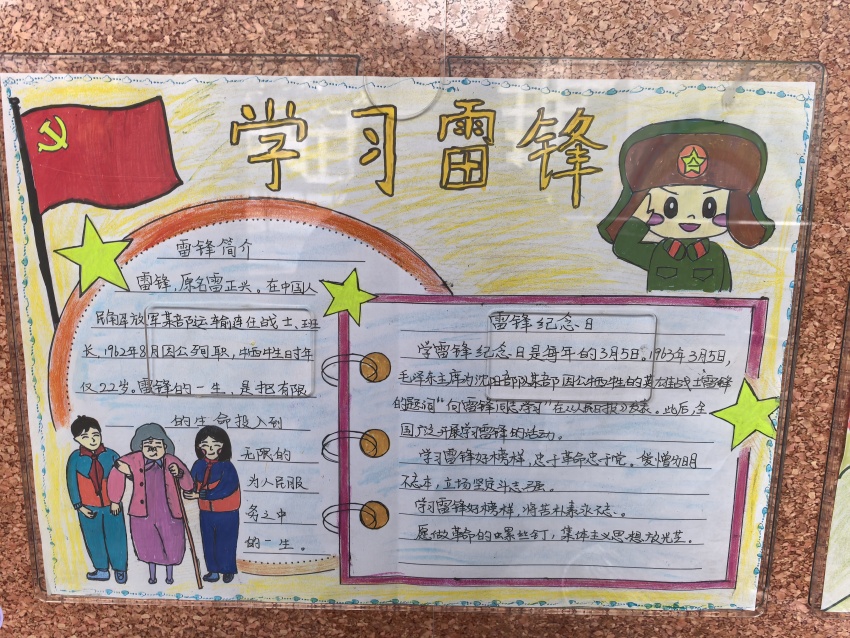 学习雷锋
雷锋简介
雷锋,原名雷正兴。在中国人
民解放军某部运输连任战士、班
长,1962年8月因公殉职,牺牲时年
仅22岁。雷锋的一生,是把有限
的生命投入到
无限的
为人民服
务之中
的一生。
雷锋纪念日
学雷锋纪念日是每年的3月5日。1963年3月5日,
毛泽东主席为沈阳部队某部因公牺牲的战士雷锋
的题词“向雷锋同志学习”在《人民日报》发表。此后全
国广泛开展学习雷锋的活动。
学习雷锋好榜样,忠于革命忠于党。爱憎分明
不忘本,立场坚定斗志强。
学习雷锋好榜样,艰苦朴素永不忘。
愿做革命的螺丝钉,集体主义思想放光芒。